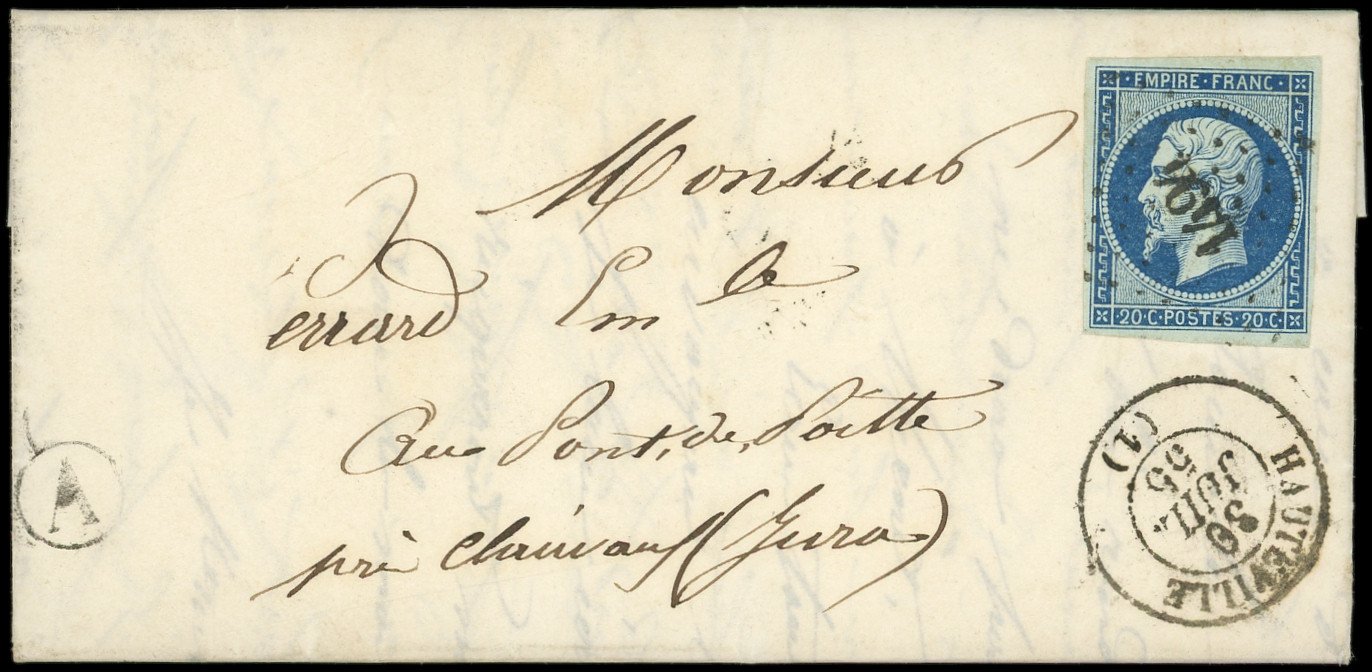 EMPIRE · FRANC ·
1494
20 · C · POSTES · 20 · C ·
Monsieur
errard Em le
Au Pont, de, Poitte
près Clairvaux (Jura)
A
HAUTEVILLE
30
JUIL.
55
(1)